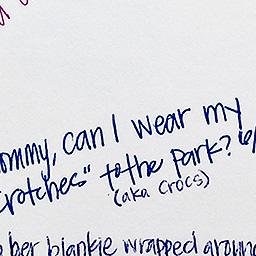 ommy, can I wear my
crotches" to the park?
(aka crocs)
her blankie wrapped around